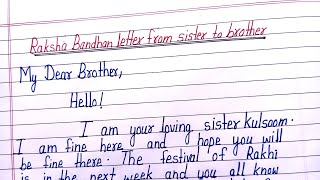 Raksha Bandhan letter from sister to brother
My Dear Brother,
Hello!
I am your loving sister Kulsoom.
I am fine here and hope you will
be fine there. The festival of Rakhi
is in the next week and you all know